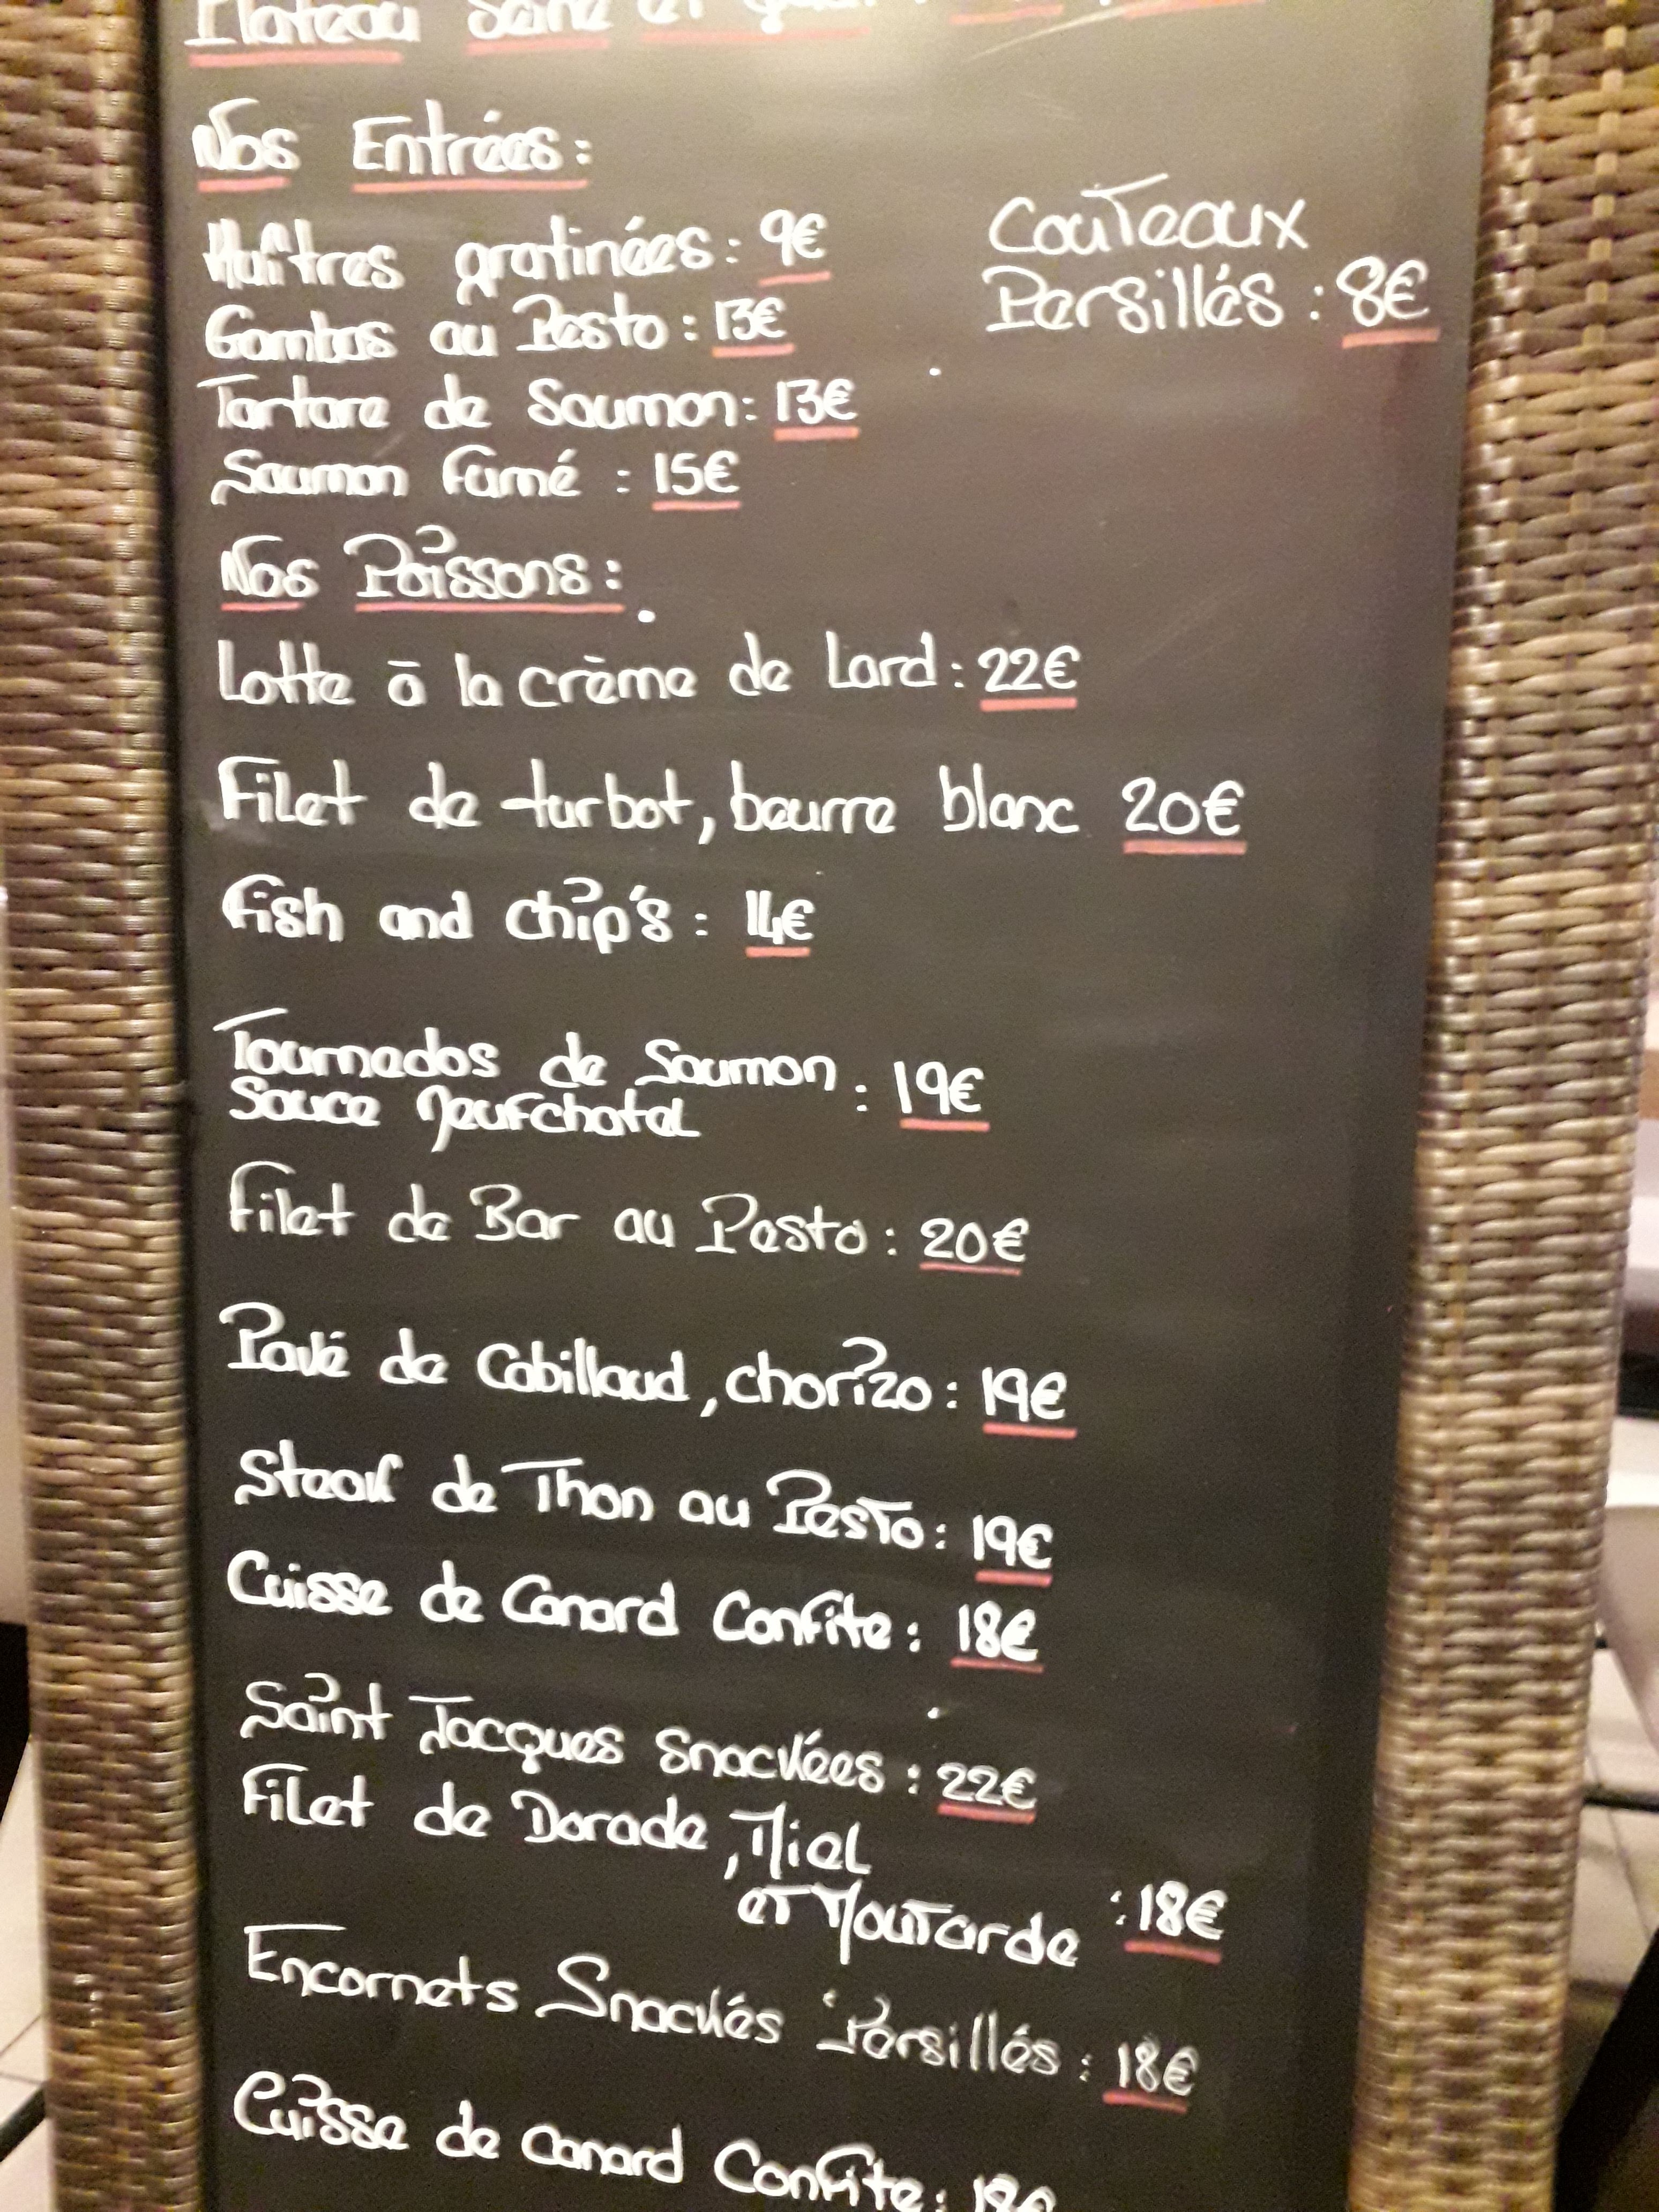 Plateau
Nos Entrées:
Huîtres gratinées: 9€
Couteaux
Persillés: 8€
Gambas au Pesto: 13€
Tartare de Saumon: 13€
Saumon Fumé : 15€
Nos Poissons:
Lotte à la crème de Lard: 22€
Filet de turbot, beurre blanc 20€
Fish and chip's: 14€
Tournedos de Saumon : 19€
Sauce Neufchatel
Filet de Bar au Pesto: 20€
Pavé de Cabillaud, chorizo: 19€
Steak de Thon au Pesto: 19€
Cuisse de Canard Confite: 18€
Saint Jacques Snackées: 22€
Filet de Dorade, Miel
et Moutarde : 18€
Encornets Snackés Persillés: 18€
Cuisse de Canard Confite: 18€